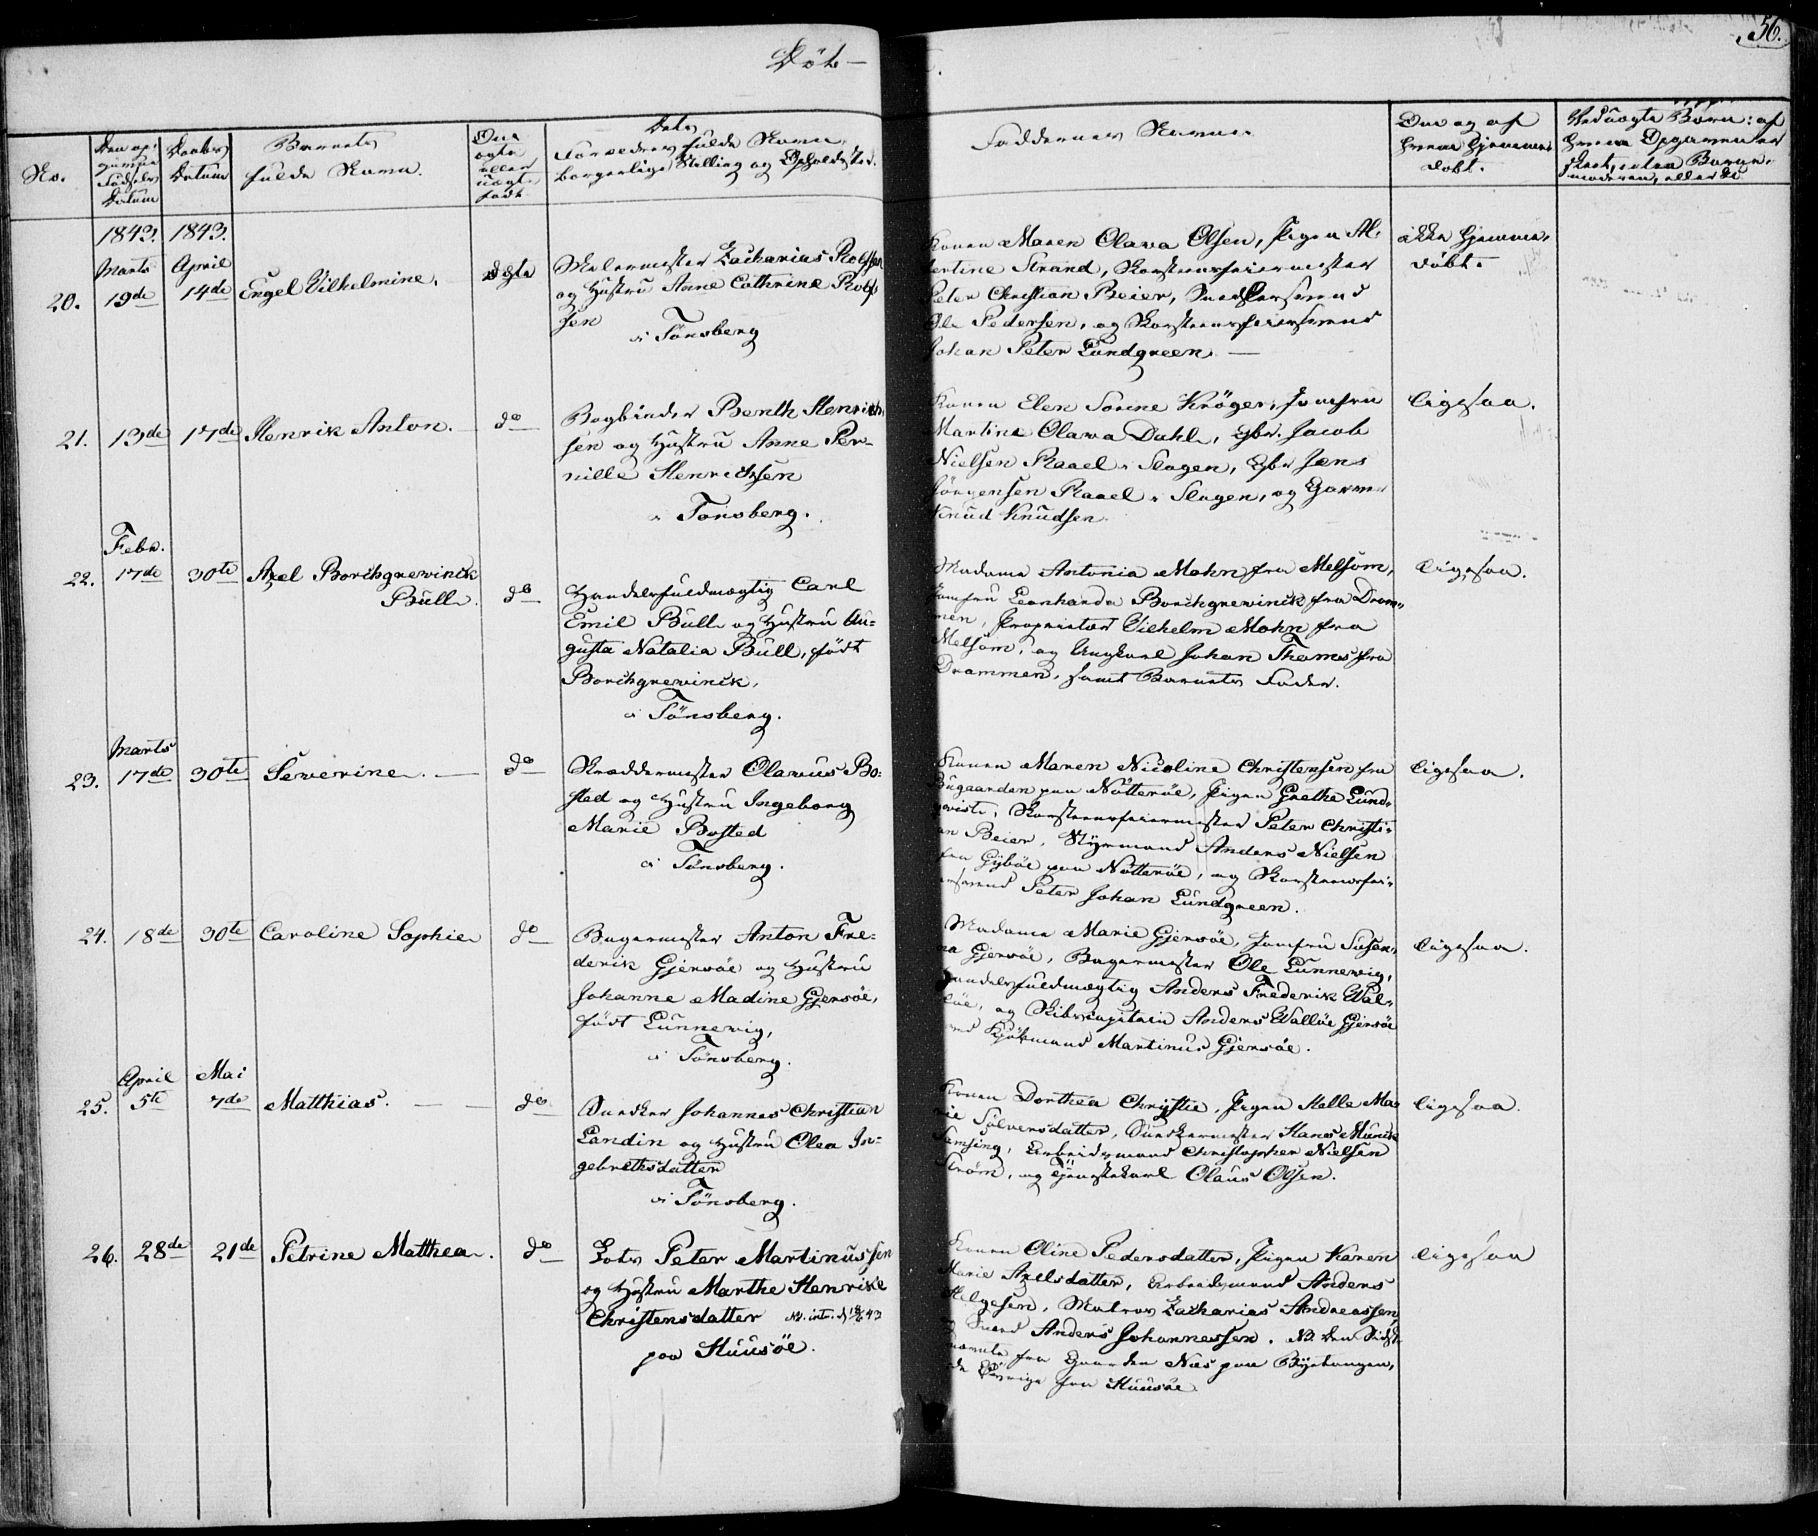 56.
Døb-
No.
Den opgivne Fødsels Datum
Daabs Datum
Barnets fulde Navn.
Om ægte eller uægte født
Forældrenes fulde Navn, borgerlige Stilling og Opholdssted.
Faddernes Navne.
Om og af hvem hjemmedøbt.
1843. 1843.
Marts April
20. 19de 14de Engel Vilhelmine.
ægte
Malermester Zacharias Rolfsen
og Hustru Anne Cathrine Rolf-
sen
i Tönsberg
Konen Maren Olava Olsen, Pigen Al-
bertine Strand, Skorsteensfeiermester
Peter Christian Beier, Snedkersvend
Ole Pedersen, og Skorsteensfeiersvend
Johan Peter Lundgreen. —
ikke hjemme-
døbt.
21. 13de 17de Henrik Anton. do
Bogbinder Benth Henrich-
sen og Hustru Anne Per-
nille Henrichsen
i Tönsberg.
Konen Elen Sorine Kröger, Jomfru
Martine Olava Dahl, Gbr. Jacob
Nielsen Raael i Slagen, Gbr Jens
Jörgensen Raael i Slagen, og Garver
Knud Knudsen.
ligesaa.
Febr.
22. 17de 30te Axel Borchgrevinck
Bull. do
Handelsfuldmægtig Carl
Emil Bull og Hustru Au-
gusta Natalia Bull, født
Borchgrevinck,
i Tönsberg.
Madame Antonia Mohn fra Melsom,
Jomfru Leonharda Borchgrevinck fra Dram-
men, Proprietær Vilhelm Mohn fra
Melsom, og Ungkarl Johan Thams fra
Drammen, samt Barnets Fader.
ligesaa.
Marts
23. 17de 30te Severine. — do
Skræddermester Olavus Bo-
sted og Hustru Ingeborg
Marie Bosted
i Tönsberg.
Konen Maren Nicoline Christensen fra
Bugaarden paa Nötteröe, Pigen Grethe Lund-
qviste, Skorsteensfeiermester Peter Christi-
an Beier, Styrmand Anders Nielsen
fra Gÿböe paa Nötteröe, og Skorsteensfei-
ersvend Peter Johan Lundgreen.
ligesaa.
24. 18de 30te Caroline Sophie do
Bagermester Anton Fre-
derik Gjersöe og Hustru
Johanne Madine Gjersöe,
født Lunnevig,
i Tönsberg.
Madame Marie Gjersöe, Jomfru Susan-
na Gjersöe, Bagermester Ole Lunnevig,
Handelsfuldmægtig Anders Frederik Wal-
löe, og Skibscapitain Anders Wallöe Gjersöe
med Kjöbmand Martinus Gjersöe.
ligesaa.
April Mai
25. 5te 7de Matthias. — — do
Snedker Johannes Christian
Landin og Hustru Olea In-
gebrethsdatter
i Tönsberg.
Konen Dorthea Christie, Pigen Helle Ma-
rie Sjølversdatter, Snedkermester Hans Munck
Samsing, Arbeidsmand Christopher Nielsen
Ström, og Tjenestekarl Olaus Olsen.
ligesaa.
26. 28de 21de Petrine Matthea. do
Lods Peter Martinussen
og Hustru Marthe Henrike
Christensdatter
paa Huusöe.
Konen Oline Pedersdatter, Pigen Karen
Marie Axelsdatter, Arbeidsmand Anders
Helgesen, Matros Zacharias Andreassen,
og Svend Anders Johannessen. NB. den Sidst-
nævnte fra Gaarden Næs paa Bÿetangen,
de Øvrige fra Huusöe.
ligesaa